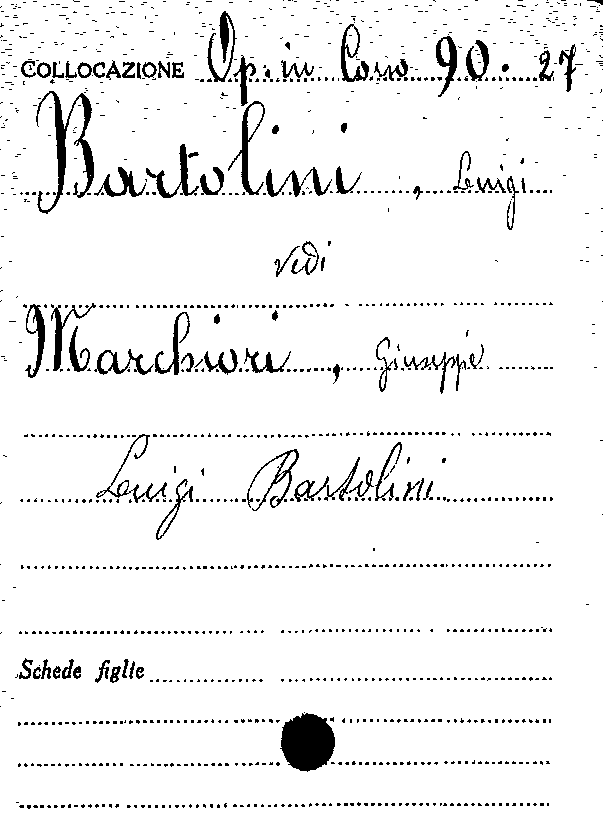 COLLOCAZIONE Op. in Corso 90. 27
Bartolini, Luigi
vedi
Marchiori, Giuseppe
Luigi Bartolini
Schede figlie